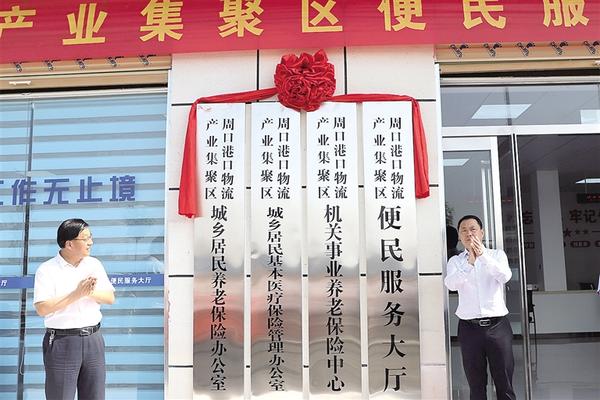 产业集聚区便民服
周口港口物流产业集聚区 城乡居民养老保险办公室
周口港口物流产业集聚区 城乡居民基本医疗保险管理办公室
周口港口物流产业集聚区 机关事业养老保险中心
周口港口物流产业集聚区 便民服务大厅
工作无止境
大厅
便民服务大厅
牢记